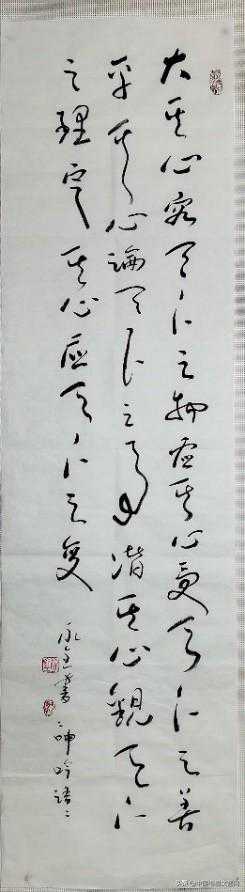 大其心容天下之物虛其心受天下之善
平其心論天下之事潛其心觀天下
之理定其心應天下之變
永書呻吟語